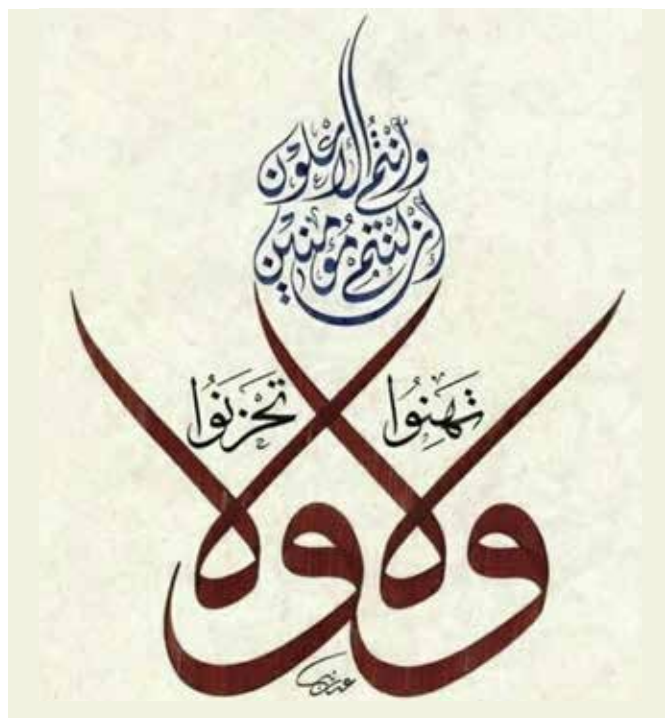 ولا ولا
تَهِنُوا تَحْزَنُوا
وأنتُمُ الأعْلَوْن
إن كنتم مُؤْمنين